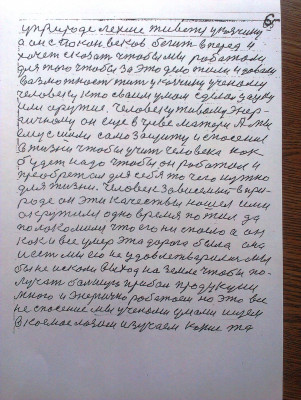 6
у природе легкие животи у кончину
а он спокон веков бегит вперед и
хочет сказат чтобы мы работали
для того чтобы за это дело жили и давали
возможности жить у кончину ученому
человеку кто своим умом сделал
или оружия. Человеку живому энер-
гичному он еще в чреве матери
сами само защиту и спасение
в жизни чтобы учит человека как
будет надо чтобы он работал и
преобретал для себя то чего нужно
для жизни. Человек зависимый в при-
роде он эти качества нашел или
окружил одно время пожил да
полакомил что его ни стало а он
как и все умер эта дорога была она
и ест мы ею не удовлетворили мы
были искали выход на земле чтобы по-
лучать большую прибал продукции
много и энергично работали но это все
не спасение мы учеными умами ищем
в космос лозом изучаем какие та